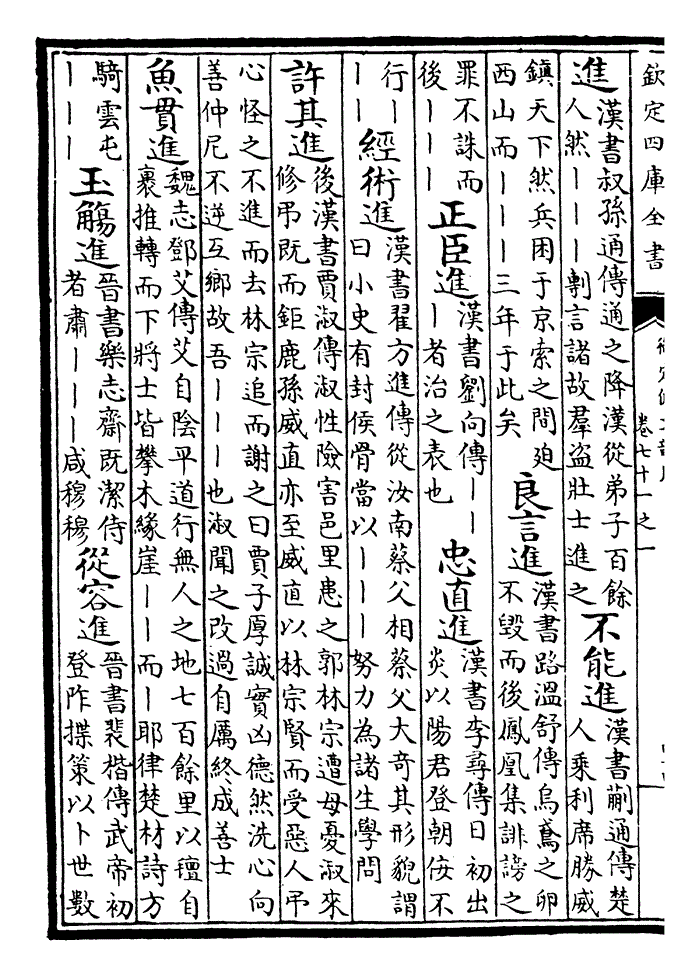 欽定四庫全書
卷七十一之一
進
漢書叔孫通傳通之降漢從弟子百餘
人然丨丨丨剸言諸故羣盗壯士進之
不能進
漢書蒯通傳楚
人乘利席勝威
鎮天下然兵困于京索之間廹
西山而丨丨丨三年于此矣
良言進
漢書路溫舒傳烏鳶之卵
不毁而後鳳凰集誹謗之
罪不誅而
後丨丨丨
正臣進
漢書劉向傳丨丨
丨者治之表也
忠直進
漢書李尋傳日初出
炎以陽君登朝佞不
行丨
丨丨
經術進
漢書翟方進傳從汝南蔡父相蔡父大奇其形貌謂
曰小史有封侯骨當以丨丨丨努力為諸生學問
許其進
後漢書賈淑傳淑性險害邑里患之郭林宗遭母憂淑來
修弔既而鉅鹿孫威直亦至威直以林宗賢而受惡人弔
心怪之不進而去林宗追而謝之曰賈子厚誠實凶德然洗心向
善仲尼不逆互鄉故吾丨丨丨也淑聞之改過自厲終成善士
魚貫進
魏志鄧艾傳艾自陰平道行無人之地七百餘里以氊自
裹推轉而下將士皆攀木緣崖丨丨而丨耶律楚材詩方
騎雲屯
丨丨丨
玉觴進
晉書樂志齋既潔侍
者肅丨丨丨咸穆穆
從容進
晉書裴楷傳武帝初
登阼揲策以卜世數